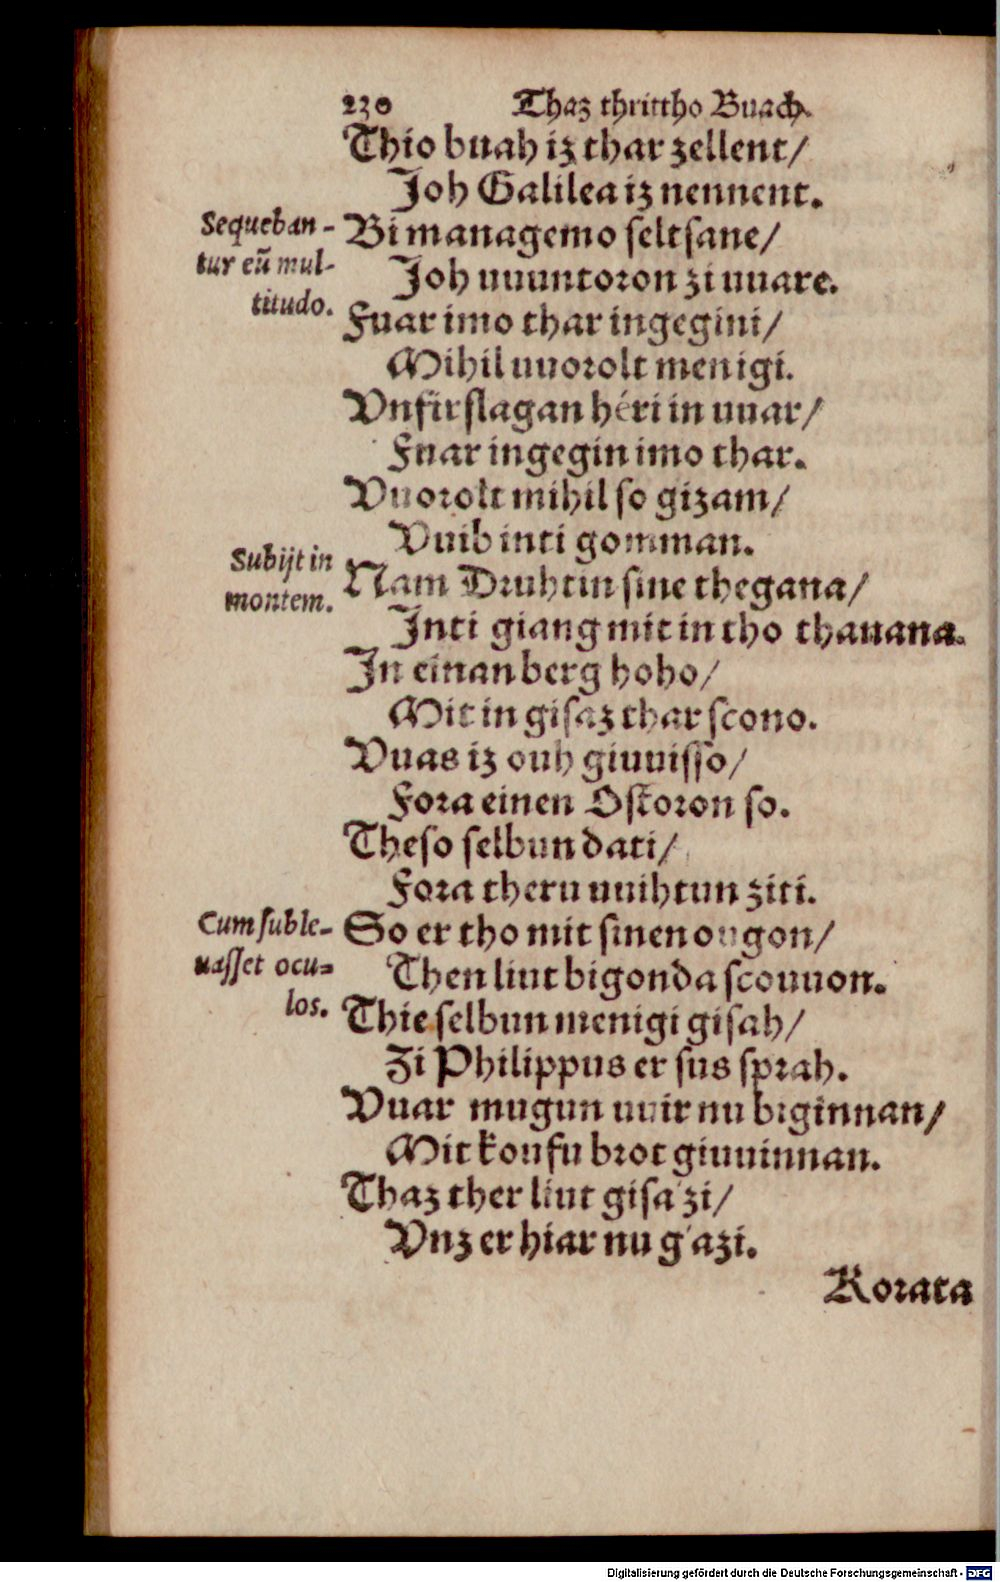 230 Thaz thrittho Buach.
Thio buah iz thar zellent/
Joh Galilea iz nennent.
Sequeban-
tur eũ mul-
titudo.
Bi managemo seltsane/
Joh uuuntoron zi uuare.
Fuar imo thar ingegini/
Mihil uuorolt menigi.
Vnfirslagan héri in uuar/
Fuar ingegin imo thar.
Vuorolt mihil so gizam/
Vuib inti gomman.
Subijt in
montem.
Nam Druhtin sine thegana/
Inti giang mit in tho thanana.
In einan berg hoho/
Mit in gisaz thar scono.
Vuas iz ouh giuuisso/
Fora einen Ostoron so.
Theso selbun dati/
Fora theru uuihtun ziti.
Cum suble-
uasset ocu-
los.
So er tho mit sinen ougon/
Then liut bigonda scouuon.
Thie selbun menigi gisah/
Zi Philippus er sus sprah.
Vuar mugun uuir nu biginnan/
Mit koufu brot giuuinnan.
Thaz ther liut gisazi/
Vnz er hiar nu gazi.
Korata
Digitalisierung gefördert durch die Deutsche Forschungsgemeinschaft - DFG